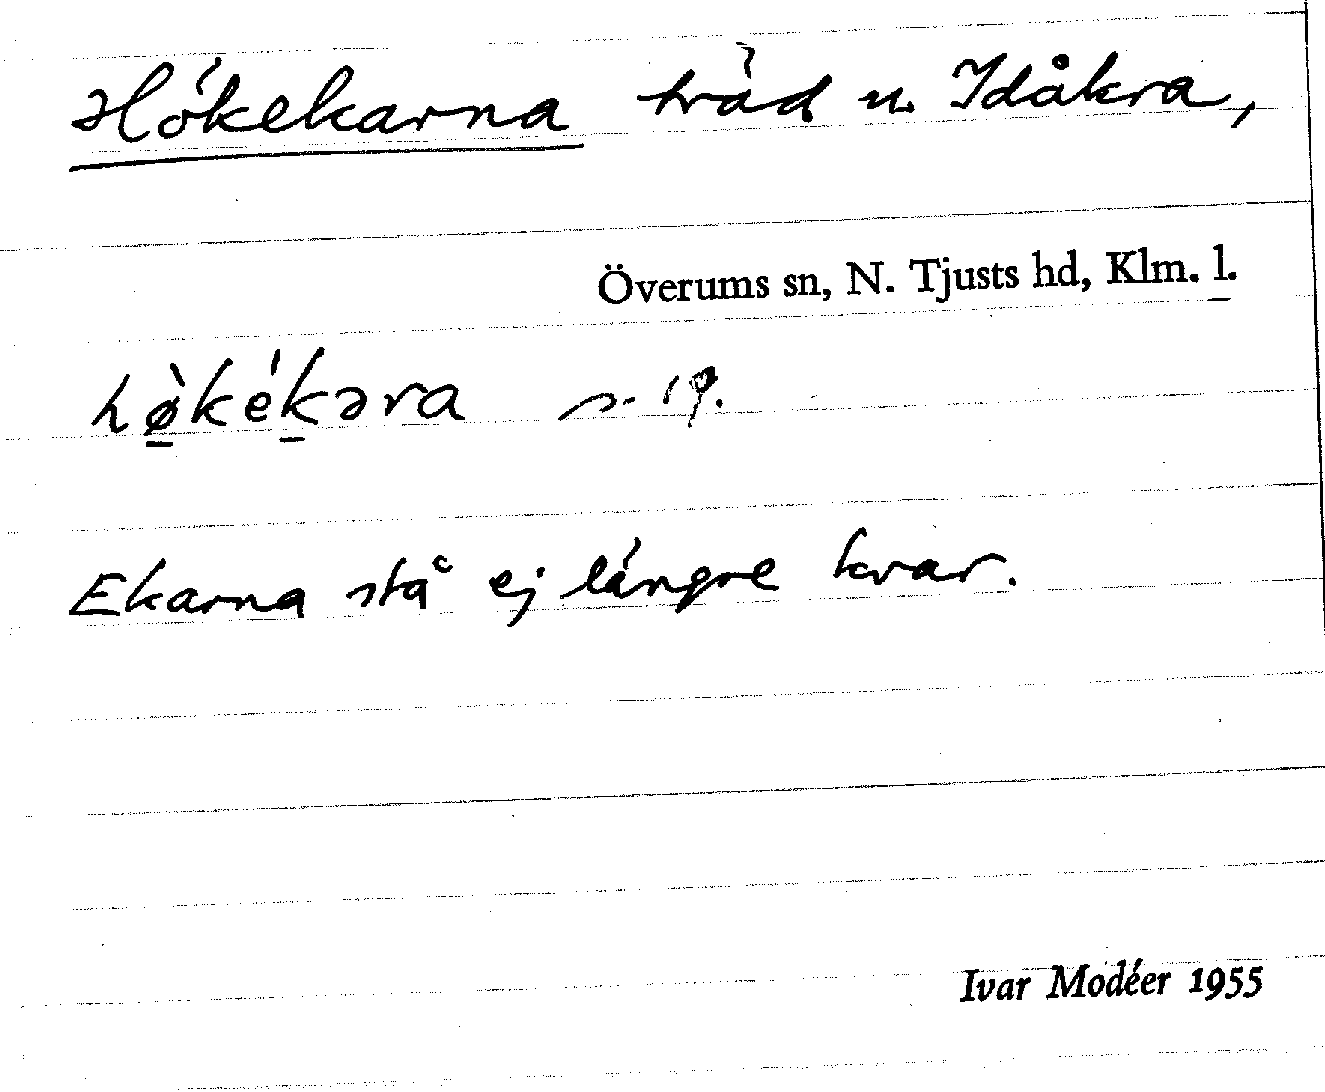 Hökekarna träd u. Idåkra,
Överums sn, N. Tjusts hd, Klm. l.
hø̠̀kék̠əra s. 19.
Ekarna stå ej längre kvar.
Ivar Modéer 1955